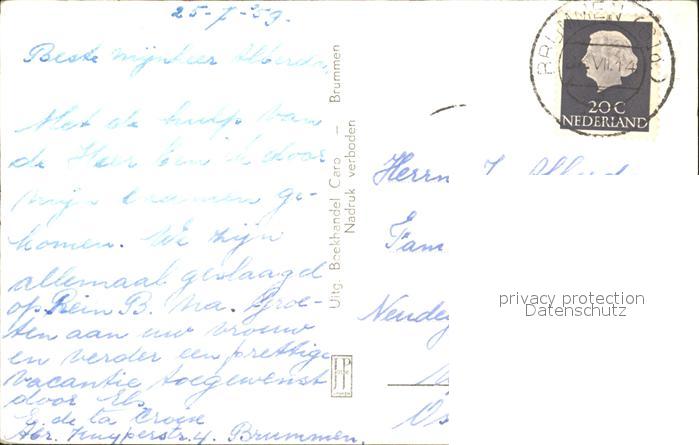 25-7-'59.
Beste mijnheer Alberda,
Met de hulp van
de Heer ben ik door
mijn examen ge-
komen. We zijn
allemaal geslaagd
op Rein B. na. Groe-
ten aan uw vrouw
en verder een prettige
vacantie toegewenst
door Els.
E. de la Croix
Abr. Kuyperstr. 4. Brummen.
Uitg. Boekhandel Caro — Brummen
Nadruk verboden
BRUMMEN
VII.14
20C
NEDERLAND
Herrn
Fam
privacy protection
Datenschutz